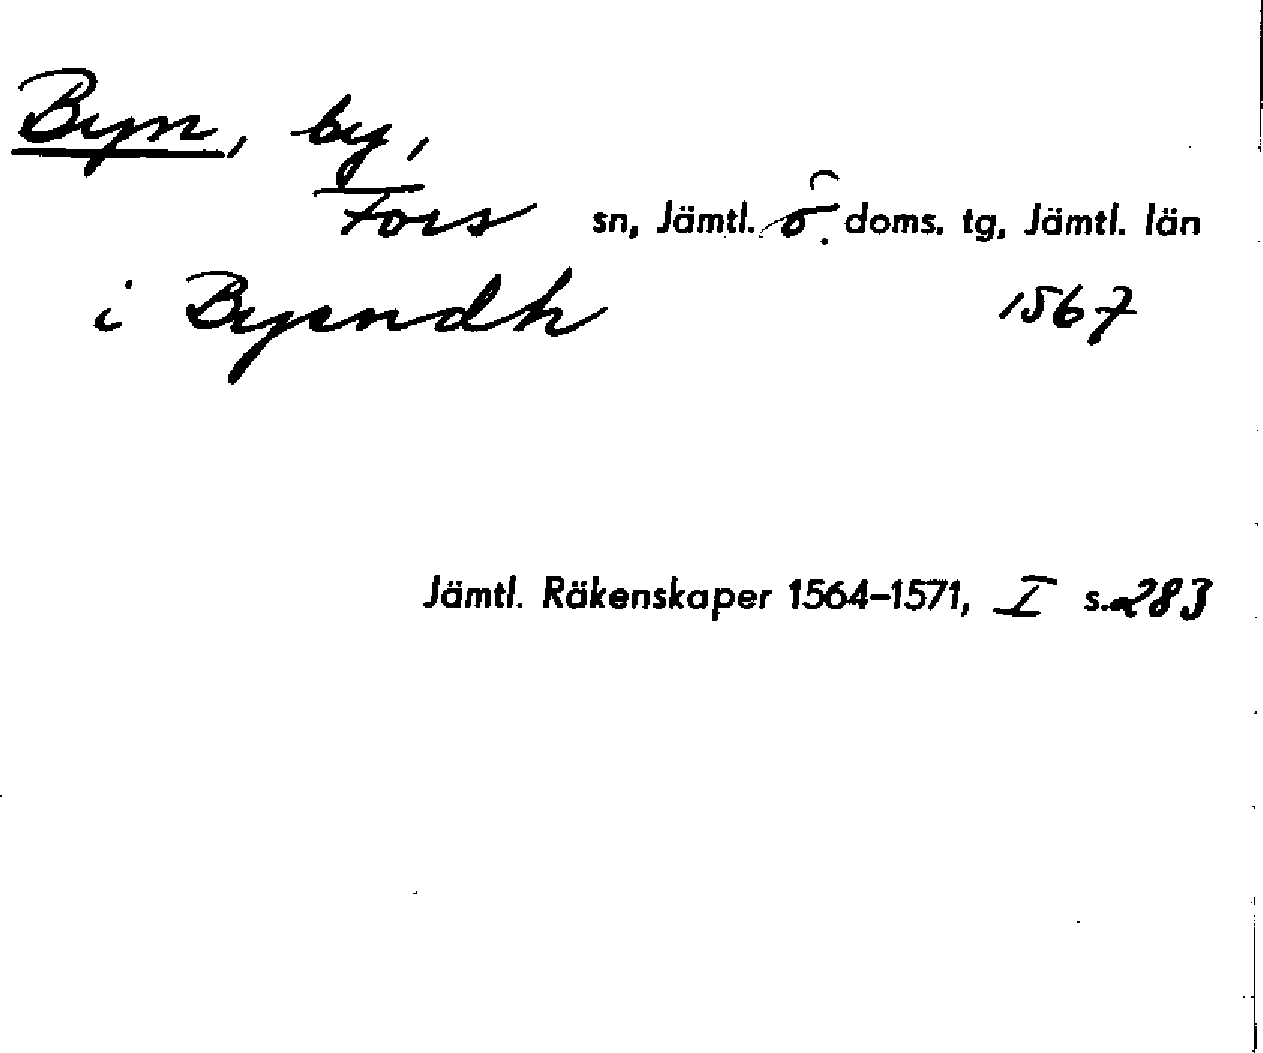 Byn, by,
Fors sn, Jämtl. ö. doms. tg, Jämtl. län
i Byendh 1567
Jämtl. Räkenskaper 1564–1571, I s. 283